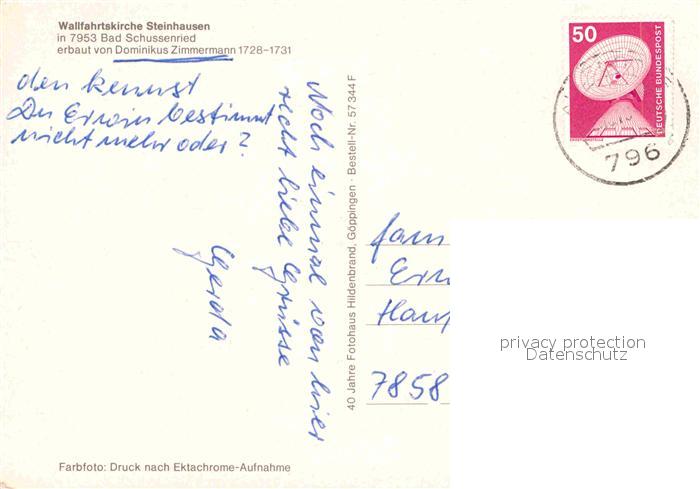 Wallfahrtskirche Steinhausen
in 7953 Bad Schussenried
erbaut von Dominikus Zimmermann 1728–1731
den kennst
Du Erwin bestimmt
nicht mehr oder?
Noch einmal von hier
recht liebe Grüsse
Gerda
40 Jahre Fotohaus Hildenbrand, Göppingen · Bestell-Nr. 57 344 F
50
DEUTSCHE BUNDESPOST
796
Fam
Erw
Haup
7858
privacy protection
Datenschutz
Farbfoto: Druck nach Ektachrome-Aufnahme